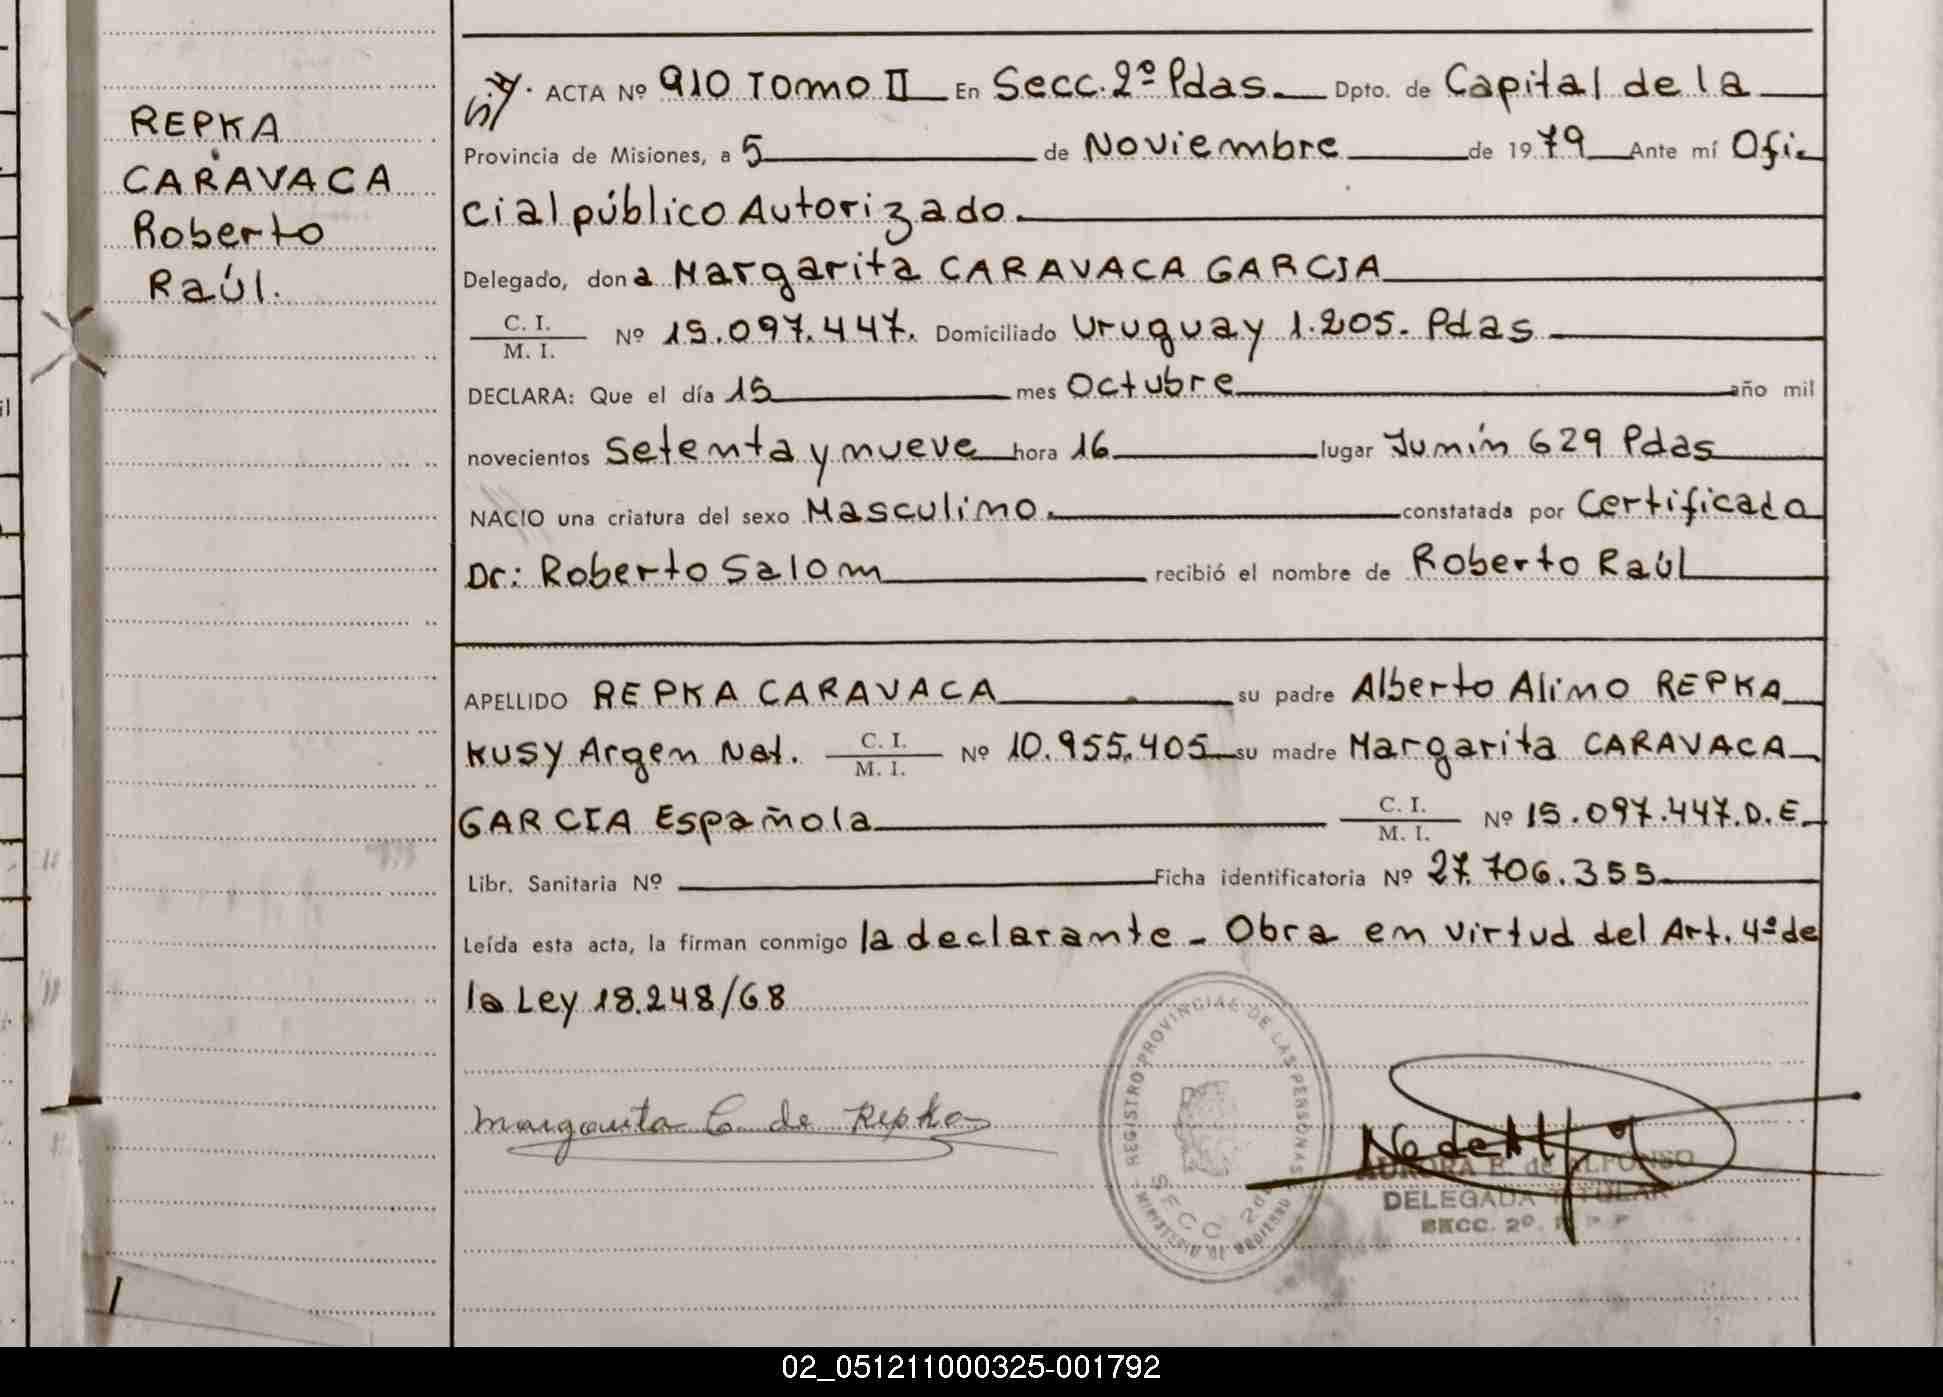 REPKA
CARAVACA
Roberto
Raúl.
ACTA Nº 910 Tomo II En Secc. 2º Pdas. Dpto. de Capital de la
Provincia de Misiones, a 5 de Noviembre de 1979 Ante mí Ofi-
cial público Autorizado.
Delegado, don a Margarita CARAVACA GARCIA
C. I. / M. I. Nº 15.097.447. Domiciliado Uruguay 1.205. Pdas
DECLARA: Que el día 15 mes Octubre año mil
novecientos Setenta y nueve hora 16 lugar Junín 629 Pdas
NACIO una criatura del sexo Masculino. constatada por Certificado
Dr: Roberto Salom recibió el nombre de Roberto Raúl
APELLIDO REPKA CARAVACA su padre Alberto Alino REPKA
KUSY Argen Nat. C. I. / M. I. Nº 10.955.405 su madre Margarita CARAVACA
GARCIA Española C. I. / M. I. Nº 15.097.447. D.E.
Libr. Sanitaria Nº Ficha identificatoria Nº 27.706.355
Leída esta acta, la firman conmigo la declarante - Obra en virtud del Art. 4º de
la Ley 18.248/68
Margarita C. de Repka
REGISTRO PROVINCIAL DE LAS PERSONAS
MINISTERIO DE GOBIERNO
SECC. 2da
AURORA E. de ALFONSO
DELEGADA TITULAR
SECC. 2º
02_051211000325-001792